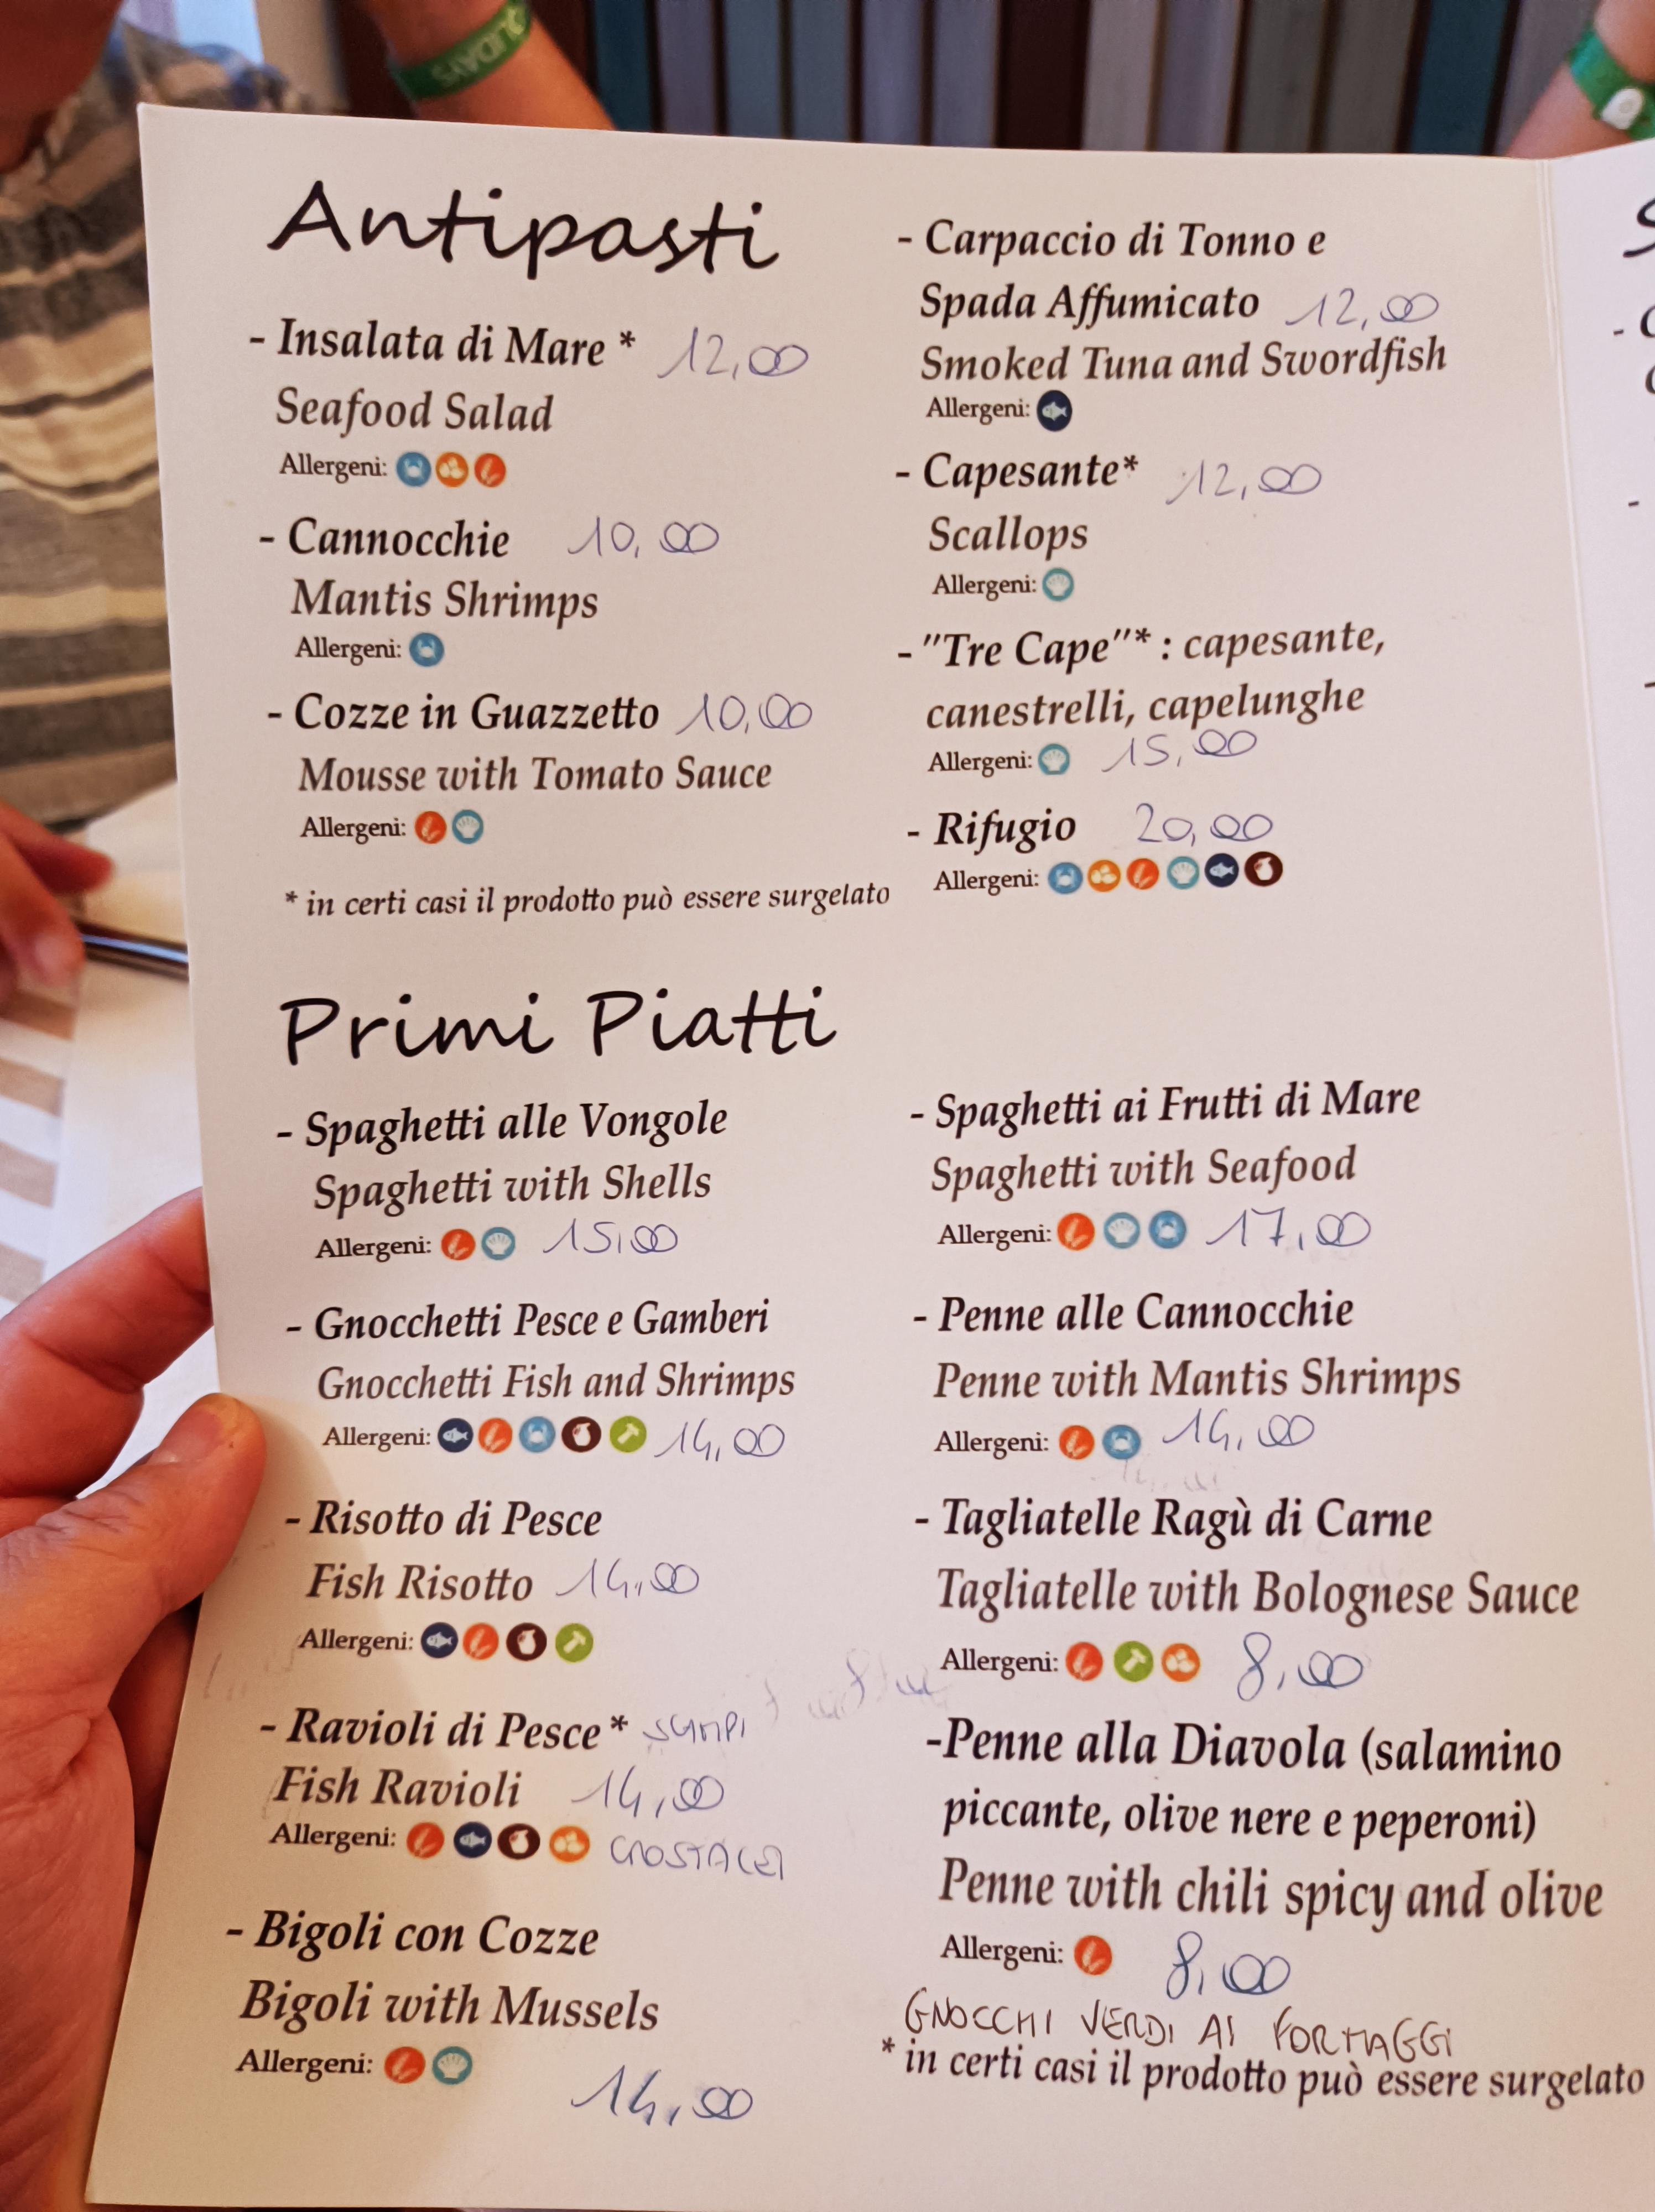 Antipasti
- Insalata di Mare * 12,00
Seafood Salad
Allergeni:
- Cannocchie 10,00
Mantis Shrimps
Allergeni:
- Cozze in Guazzetto 10,00
Mousse with Tomato Sauce
Allergeni:
* in certi casi il prodotto può essere surgelato
- Carpaccio di Tonno e
Spada Affumicato 12,00
Smoked Tuna and Swordfish
Allergeni:
- Capesante* 12,00
Scallops
Allergeni:
- "Tre Cape"* : capesante,
canestrelli, capelunghe
Allergeni: 15,00
- Rifugio 20,00
Allergeni:
Primi Piatti
- Spaghetti alle Vongole
Spaghetti with Shells
Allergeni: 15,00
- Gnocchetti Pesce e Gamberi
Gnocchetti Fish and Shrimps
Allergeni: 14,00
- Risotto di Pesce
Fish Risotto 14,00
Allergeni:
- Ravioli di Pesce * SCAMPI
Fish Ravioli 14,00
Allergeni: CROSTACEI
- Bigoli con Cozze
Bigoli with Mussels
Allergeni:
14,00
- Spaghetti ai Frutti di Mare
Spaghetti with Seafood
Allergeni: 17,00
- Penne alle Cannocchie
Penne with Mantis Shrimps
Allergeni: 14,00
- Tagliatelle Ragù di Carne
Tagliatelle with Bolognese Sauce
Allergeni: 8,00
-Penne alla Diavola (salamino
piccante, olive nere e peperoni)
Penne with chili spicy and olive
Allergeni: 8,00
GNOCCHI VERDI AI FORMAGGI
* in certi casi il prodotto può essere surgelato